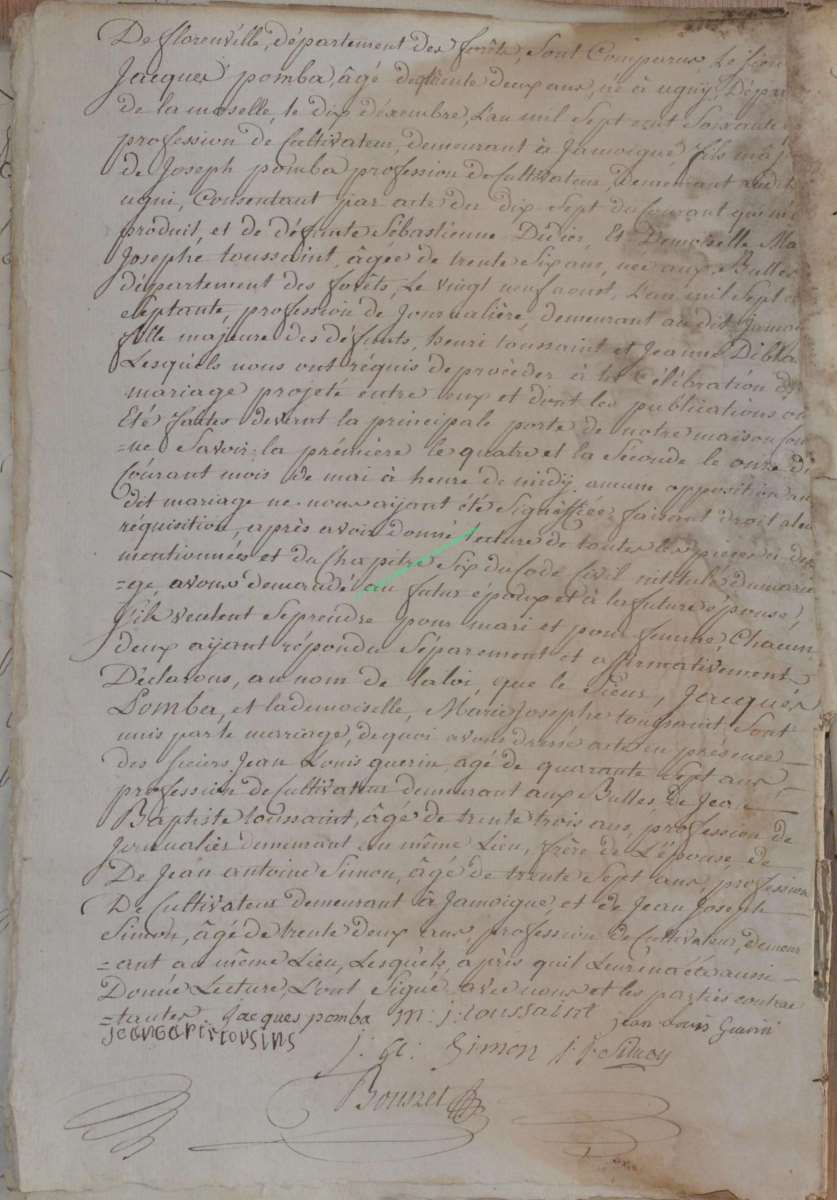 De florenville, département des forêts, Sont Comparus, Le sieur
Jacques pomba, âgé de trente deux ans, né à ugny, Dépar
de la moselle, le dix déxembre, L'an mil Sept cent Soixante
profession de Cultivateur, demeurant à Jamoigne, fils maj
de Joseph pomba profession de Cultivateur, Demeurant audit
ugni, Consentant par acte du dix Sept du Courant qui m'é
produit, et de défunte Sébastienne Didier, Et Demoiselle Ma
Josephe toussaint, âgée de trente Six ans, née aux Bulles
département des forêts, Le vingt neuf aoust, L'an mil Sept c
Septante, profession de Journalière, demeurant au dit Jamoi
fille majeure des défunts, henri toussaint et Jeanne
Lesquels nous ont réquis de procèder à la Célébration du
mariage projeté entre eux et dont les publications on
Eté faites devant la principale porte de notre maison Com
=ne Savoir: la prémière le quatre et la Seconde le onze du
Courant mois de mai à heure de midy. aucune opposition au
dit mariage ne nous ayant été Signiffiée, faisant droit à leur
réquisition, après avoir donné lecture de toutes les pièces ci des
mentionnées et du Chapitre Six du Code Civil intitulé du maria
=ge, avons demandé au futur époux et à la future épouse,
S'ils veulent Se prendre pour mari et pour femme, Chacun
deux ayant répondu Séparement et affirmativement
Déclarons, au nom de la loi, que le Sieur, Jacques
Pomba, et la demoiselle, Marie Josephe toussaint, Sont
unis par le mariage, de quoi avons dressé acte en présence
des sieurs Jean Louis guerin, agé de quarante Sept ans,
profession de Cultivateur demeurant aux Bulles, de Jean
Baptiste toussaint, âgé de trente trois ans, profession de
Journalier demeurant au même Lieu, frère de L'épouse, de
De Jean antoine Simon, âgé de trente Sept ans, profession
De Cultivateur demeurant à Jamoigne, et de Jean Joseph
Simon, âgé de trente deux ans, profession de Cultivateur, demeur
=ant au même Lieu, Lesquels, après qu'il Leur en a été aussi
Donné Lecture, L'ont Signé avec nous et les parties contrac
=tantes. Jacques pomba m: j: toussaint jean Louis Guerin
j: a: Simon j: j: Simon